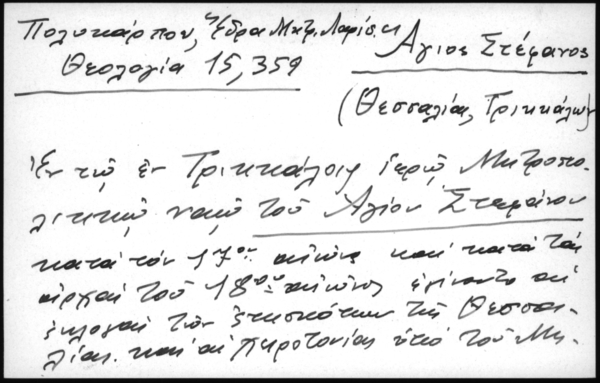 Πολυκάρπου, Ἕδρα Μητρ. Λαρίσ. εἰς Ἅγιος Στέφανος
Θεολογία 15, 359
(Θεσσαλίας, Τρικκάλων)
Ἐν τῷ ἐν Τρικκάλοις ἱερῷ Μητροπο-
λιτικῷ ναῷ τοῦ Ἁγίου Στεφάνου
κατὰ τὸν 17ον αἰῶνα καὶ κατὰ τὰς
ἀρχὰς τοῦ 18ου αἰῶνος ἐγίνοντο αἱ
ἐκλογαὶ τῶν ἐπισκόπων τῆς Θεσσα-
λίας καὶ αἱ χειροτονίαι ὑπὸ τοῦ Μη-